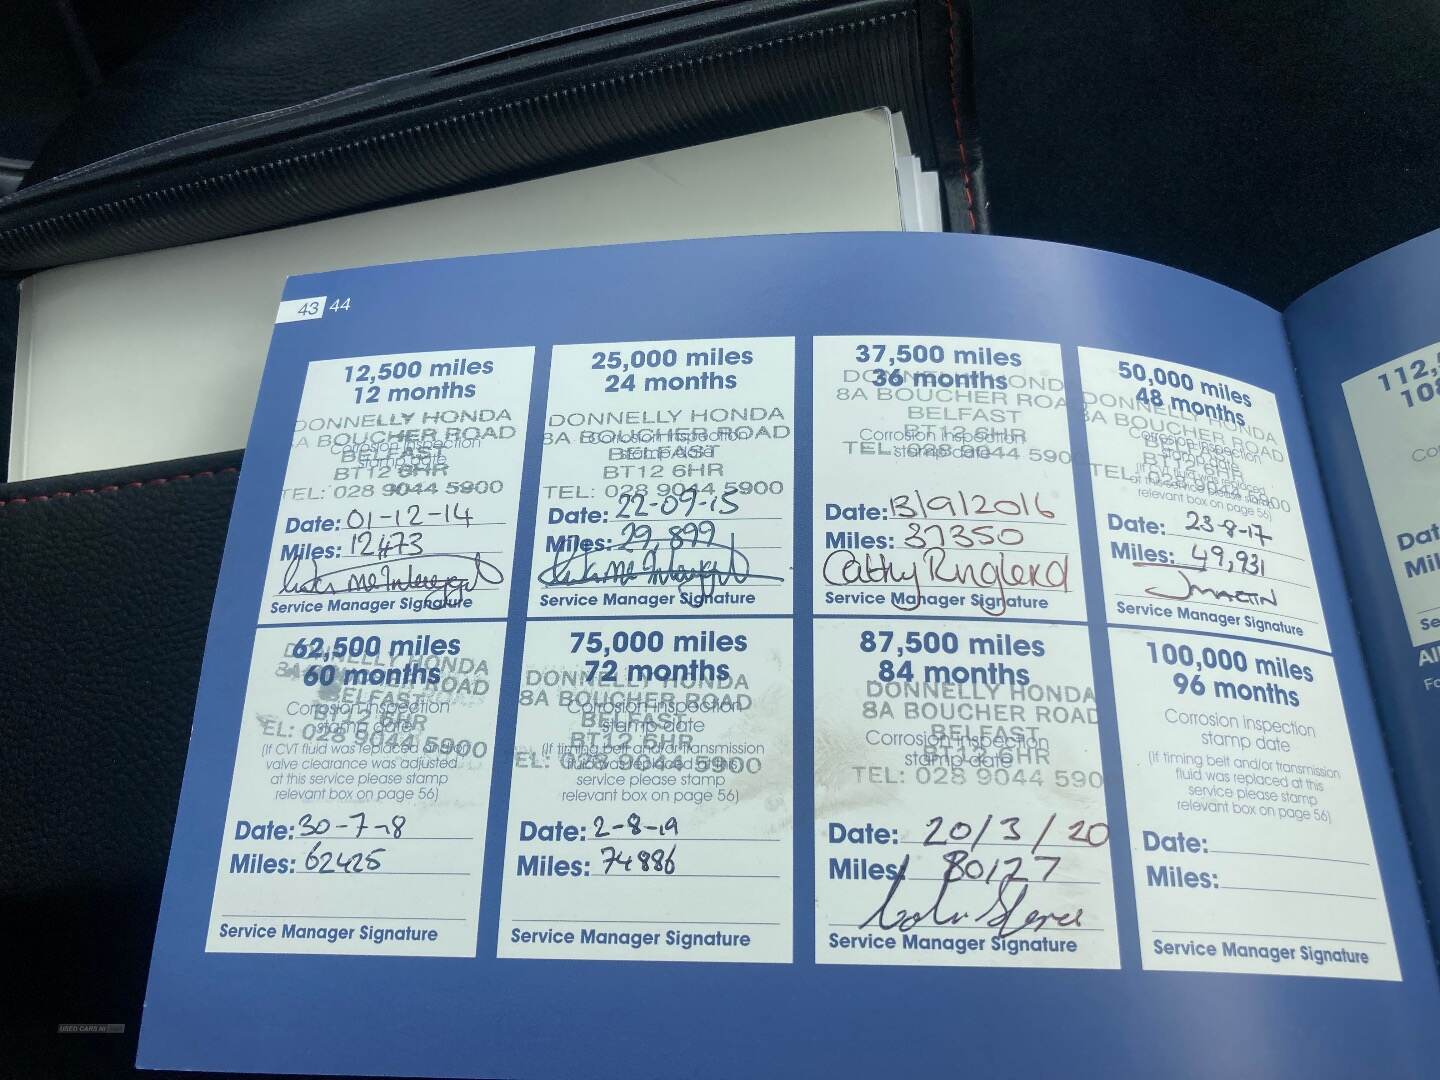 43 44
12,500 miles
12 months
DONNELLY HONDA
8A BOUCHER ROAD
Corrosion inspection
BELFAST
stamp date
BT12 6HR
TEL: 028 9044 5900
Date: 01-12-14
Miles: 12473
Service Manager Signature
25,000 miles
24 months
DONNELLY HONDA
8A BOUCHER ROAD
Corrosion inspection
BELFAST
stamp date
BT12 6HR
TEL: 028 9044 5900
Date: 22-09-15
Miles: 29,899
Service Manager Signature
37,500 miles
36 months
DONNELLY HONDA
8A BOUCHER ROA
BELFAST
BT12 6HR
Corrosion inspection
TEL: 028 9044 5900
stamp date
Date: 13/9/2016
Miles: 37350
Service Manager Signature
50,000 miles
48 months
DONNELLY HONDA
8A BOUCHER ROAD
Corrosion inspection
stamp date
relevant box on page 56)
Date: 23-8-17
Miles: 49,931
J MARTIN
Service Manager Signature
62,500 miles
60 months
DONNELLY HONDA
8A BOUCHER ROAD
BELFAST
Corrosion inspection
BT12 6HR
stamp date
EL: 028 9044 5900
(If CVT fluid was replaced and/or
valve clearance was adjusted
at this service please stamp
relevant box on page 56)
Date: 30-7-18
Miles: 62425
Service Manager Signature
75,000 miles
72 months
DONNELLY HONDA
8A BOUCHER ROAD
Corrosion inspection
BELFAST
stamp date
BT12 6HR
(If timing belt and/or transmission
EL: 028 9044 5900
fluid was replaced at this
service please stamp
relevant box on page 56)
Date: 2-8-19
Miles: 74886
Service Manager Signature
87,500 miles
84 months
DONNELLY HONDA
8A BOUCHER ROAD
BELFAST
Corrosion inspection
BT12 6HR
stamp date
TEL: 028 9044 5900
Date: 20/3/20
Miles 80127
Service Manager Signature
100,000 miles
96 months
Corrosion inspection
stamp date
(If timing belt and/or transmission
fluid was replaced at this
service please stamp
relevant box on page 56)
Date:
Miles:
Service Manager Signature
112,5
108
Co
Dat
Mil
Se
All
Fo
USED CARS NI